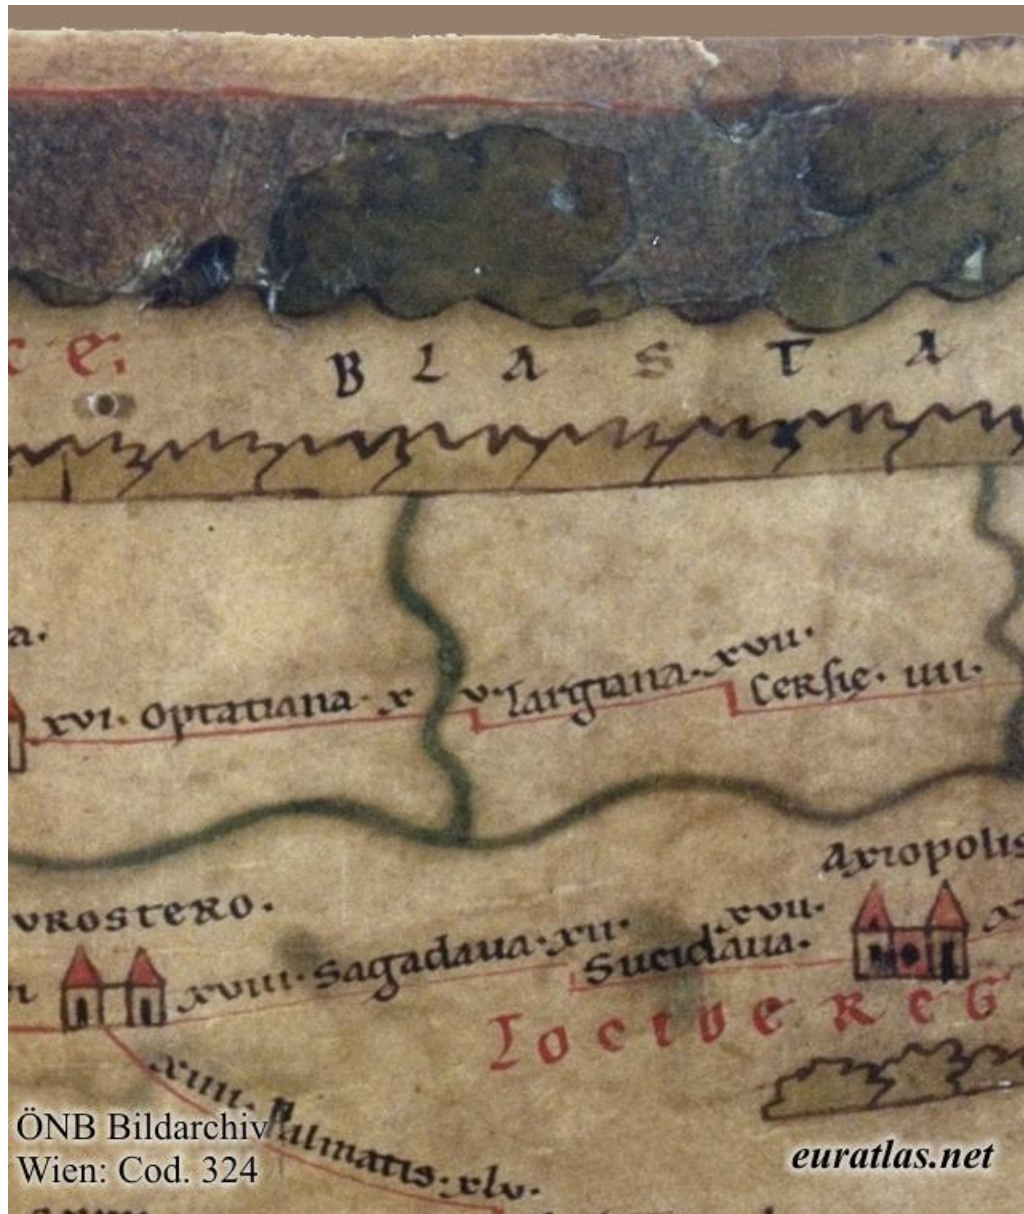 e.
B L A S T A
a.
xvi. Optatiana. x v. Largiana. xvii.
Cersie. iiii.
Axiopolis
vrostero.
xviii. Sagadaua. xii.
Sucidaua. xvii.
xiiii. Palmatis. xlv.
ÖNB Bildarchiv
Wien: Cod. 324
euratlas.net